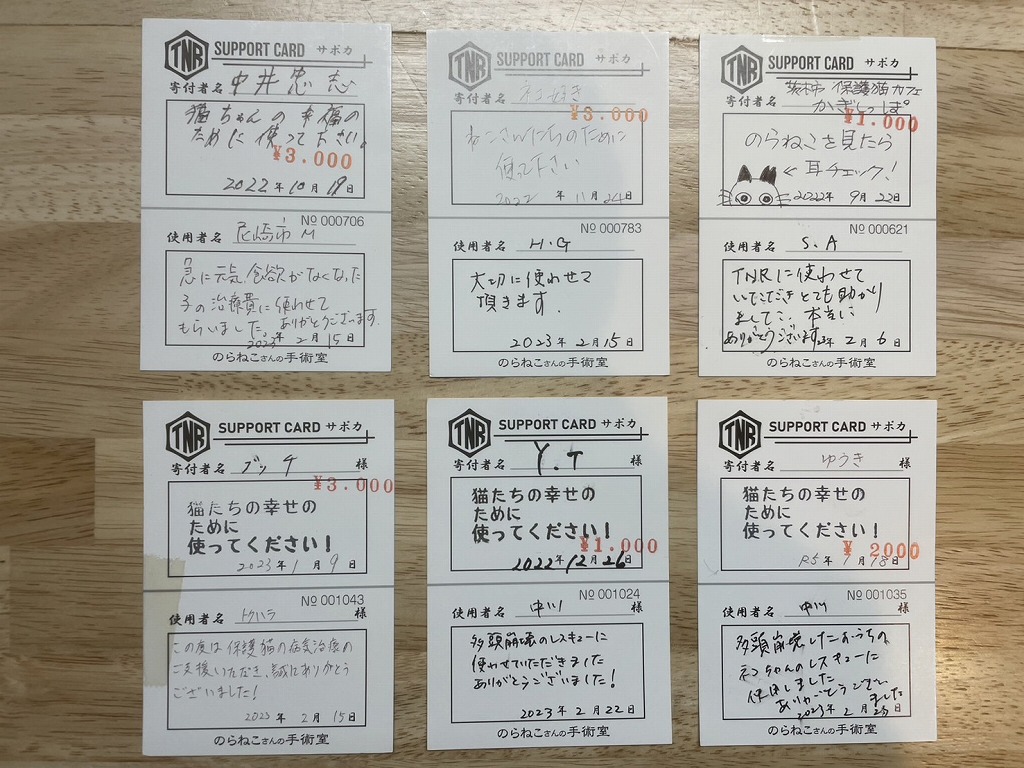 TNR SUPPORT CARD サポカ
寄付者名 中井忠志
猫ちゃんの幸福の
ために使って下さい。
¥3.000
2022年10月19日
№ 000706
使用者名 尼崎市 M
急に元気、食欲がなくなった
子の治療費に使わせて
もらいました。ありがとうございます。
2023年2月15日
のらねこさんの手術室
TNR SUPPORT CARD サポカ
寄付者名 ネコ好き
¥3.000
ねこさんたちのために
使って下さい
2022年11月24日
№ 000783
使用者名 H.G
大切に使わせて
頂きます.
2023年2月15日
のらねこさんの手術室
TNR SUPPORT CARD サポカ
寄付者名 茨木市 保護猫カフェ
かぎしっぽ
¥1.000
のらねこを見たら
<耳チェック!
2022年9月22日
№ 000621
使用者名 S.A
TNRに使わせて
いただきとても助かり
ました. 本当に
ありがとうございます
2023年2月6日
のらねこさんの手術室
TNR SUPPORT CARD サポカ
寄付者名 ブッチ 様
¥3.000
猫たちの幸せの
ために
使ってください!
2023年1月9日
№ 001043
使用者名 トクハラ 様
この度は保護猫の病気治療の
ご支援いただき、誠にありがとう
ございました!
2023年2月15日
のらねこさんの手術室
TNR SUPPORT CARD サポカ
寄付者名 Y.T 様
猫たちの幸せの
ために
使ってください!
¥1.000
2022年12月26日
№ 001024
使用者名 中川 様
多頭崩壊のレスキューに
使わせていただきました
ありがとうございました!
2023年2月22日
のらねこさんの手術室
TNR SUPPORT CARD サポカ
寄付者名 ゆうき 様
猫たちの幸せの
ために
使ってください!
¥ 2000
R5年1月18日
№ 001035
使用者名 中川 様
多頭崩壊したおうちの
ネコちゃんのレスキューに
使用しました
ありがとうござい
ました
2023年2月23日
のらねこさんの手術室